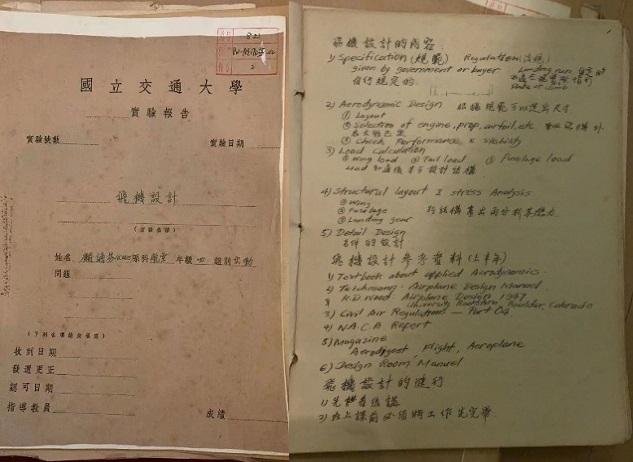 821
2
國立交通大學
實驗報告
實驗號數
實驗日期
飛機設計
(實驗名稱)
姓名 系科 航空 年級 四 組別
問題
(下列各項請勿填寫)
收到日期
發還更正
認可日期
指導教員
成績
飛機設計的內容
1) Specification (規範) Regulation
given by government or buyer Landing run
自行規定的 Rate of climb
2) Aerodynamic Design
① Layout
② Selection of engine, prop, airfoil, etc
③ Check Performance & stability
3) Load Calculation
① Wing load ② Tail load ③ Fuselage load
Load 知道後才可設計結構
4) Structural layout & Stress Analysis
① Wing
② Fuselage
③ Landing gear
5) Detail Design
各件的設計
飛機設計參考資料 (上半年)
1) Textbook about applied Aerodynamic.
2) Airplane Design Manual
K.D. Wood Airplane Design 1947
University Bookstore, Boulder, Colorado
3) Civil Air Regulations — Part 04
4) N.A.C.A Report
5) Magazine
Aerodigest, Flight, Aeroplane
6) Design Room Manuel
飛機設計的進行
1)
2) 在上課前必須將工作先完畢